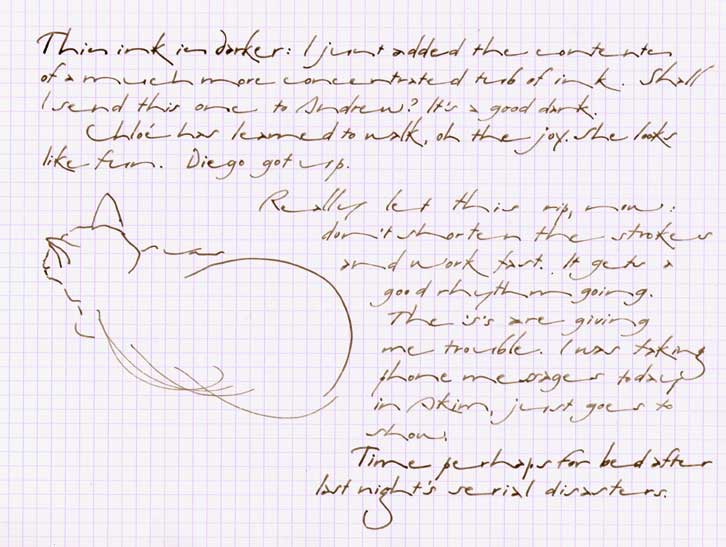 This ink is darker: I just added the contents
of a much more concentrated tub of ink. Shall
I send this one to Andrew? It's a good dark.
Chloé has learned to walk, oh the joy. She looks
like fun. Diego got up.
Really let this rip, now:
don't shorten the strokes
and work fast. It gets a
good rhythm going.
The 's's are giving
me trouble. I was taking
phone messages today
in Skim, just goes to
show.
Time perhaps for bed after
last night's serial disasters.